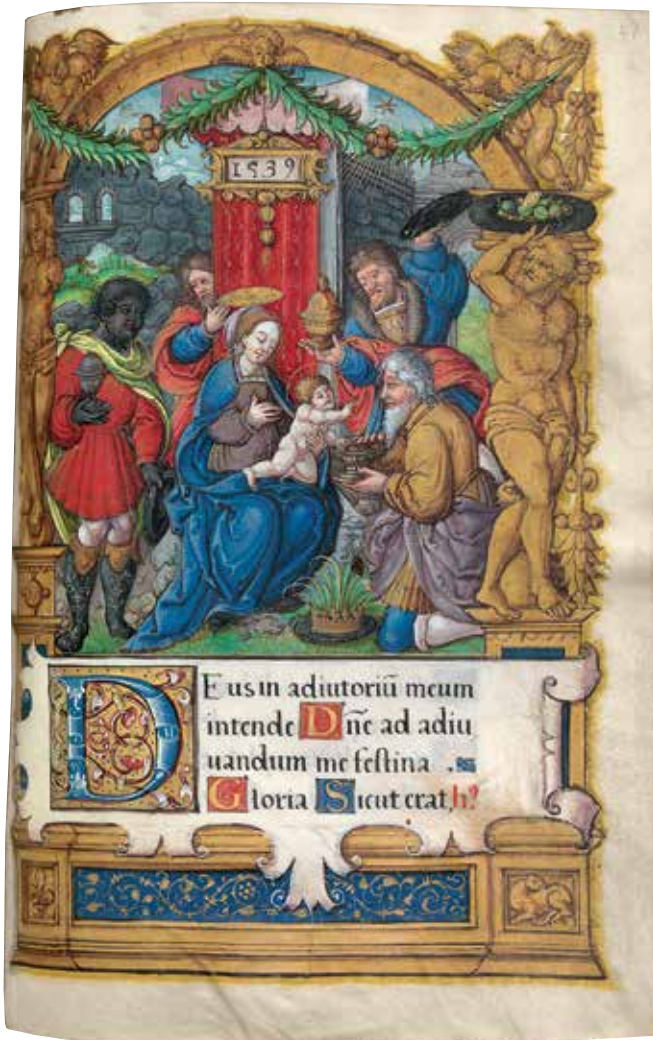 1539
Deus in adiutoriū meum
intende Dn̄e ad adiu
uandum me festina .
Gloria Sicut erat, h?